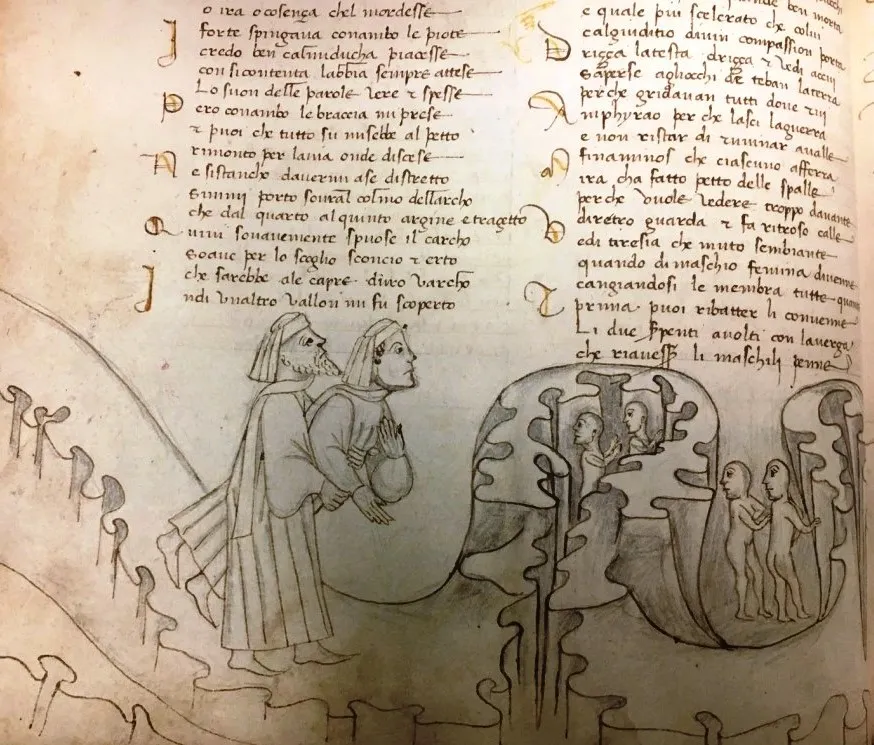 o ira o cosença chel mordesse
forte spingava conambo le piote
J credo ben calmiuducha piacesse
con sicontenta labbia sempre attese
Lo suon delle parole vere & spesse
Pero conambo le braccia mi prese
& puoi che tutto su misebbe al petto
rimonto per lavia onde discese
Ne sistancho davermi ase distretto
Simmi porto sovral colmo dellarcho
che dal quarto al quinto argine e tragetto
Quivi soavemente spuose il carcho
Soave per lo scoglio sconcio & erto
che sarebbe ale capre duro varcho
Jndi unaltro vallon mi fu scoperto
ben morta
e quale piu scelerato che colui
calgiuditio divin compassion porta
Driçça latesta driçça & vedi accui
saperse agliocchi de teban laterra
perche gridavan tutti dove rui
Amphyrao per che lasci laguerra
e non ristar di ruminar avalle
finaminos che ciascuno afferra
Mira cha fatto petto delle spalle
perche vuole vedere troppo davante
diretro guarda & fa ritroso calle
Vedi tiresia che muto sembiante
quando di maschio femina divenne
cangiandosi le membra tutte quante
T prima puoi ribatter li convenne
Li due Spenti avolti con laverga
che riavess li maschili penne